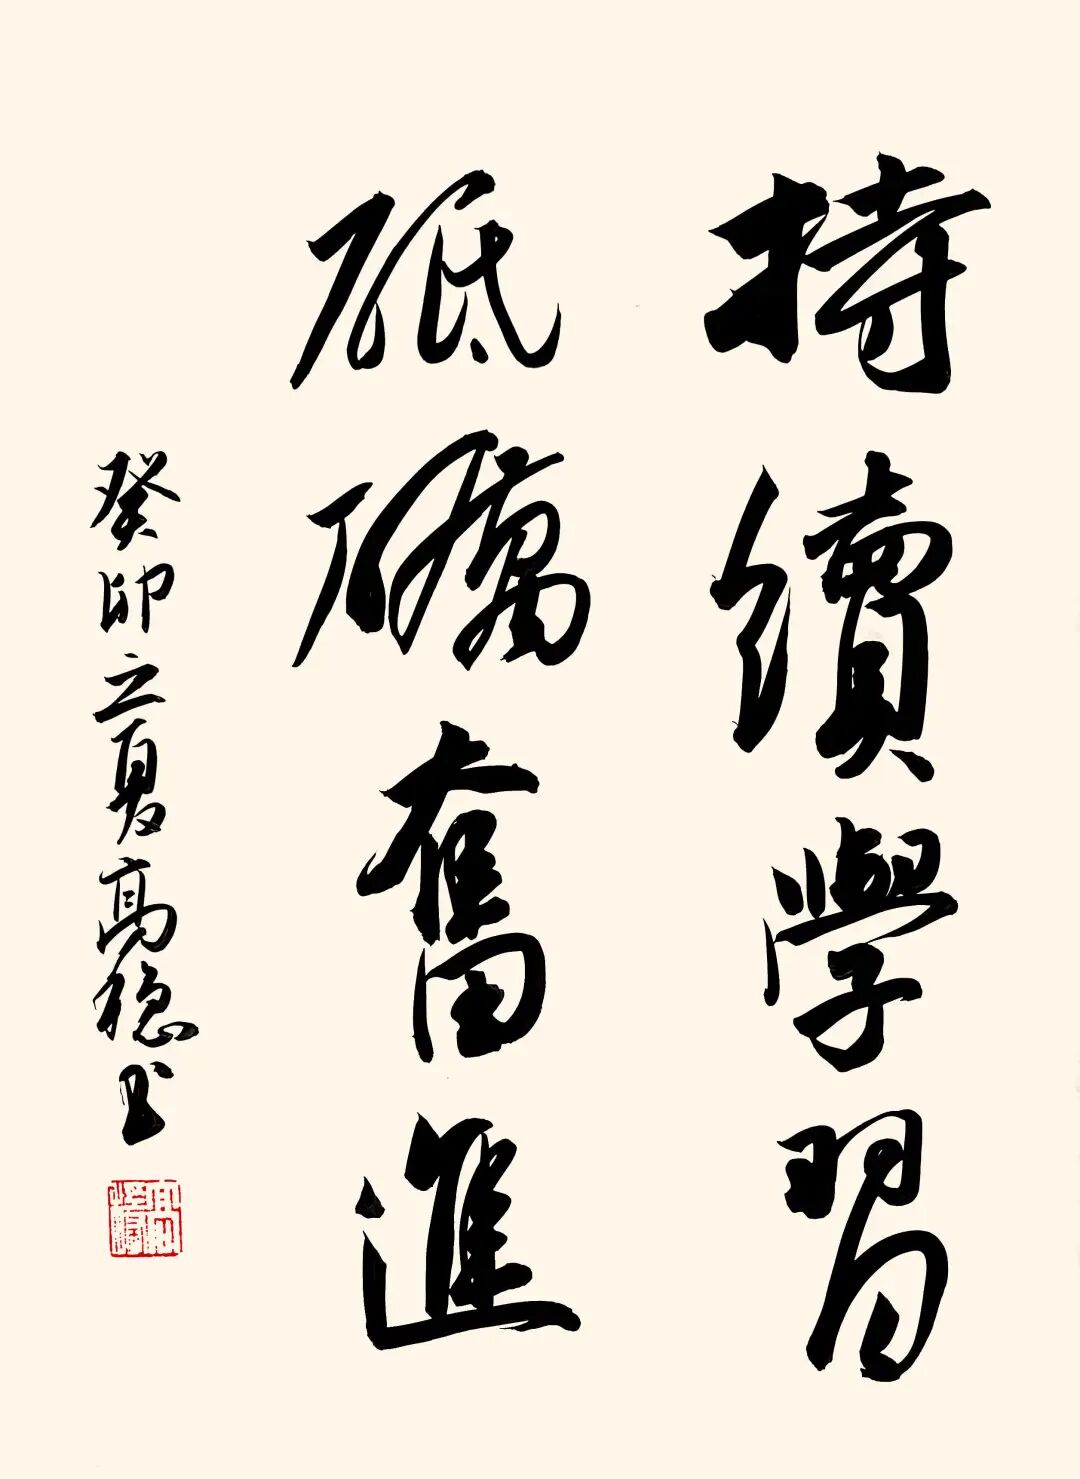 持續學習
砥礪奮進
癸卯立夏高稳书